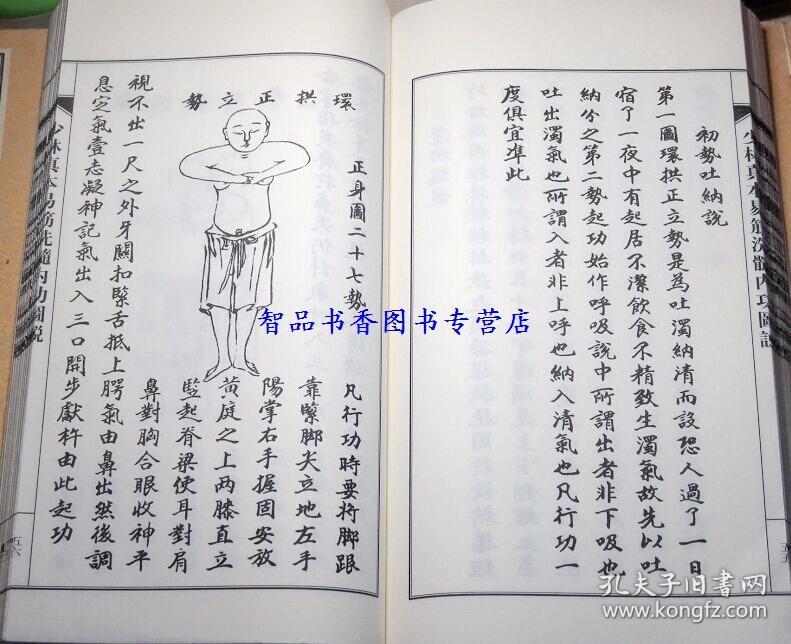 初勢吐納說
第一圖環拱正立勢是為吐濁納清而設恐人過了一日
宿了一夜中有起居不潔飲食不精致生濁氣故先以吐
納分之第二勢起功始作呼吸說中所謂出者非下吸也
吐出濁氣也所謂入者非上呼也納入清氣也凡行功一
度俱宜準此
少林真本易筋洗髓內功圖說
環拱正立勢
正身圖二十七勢
凡行功時要將脚跟
靠緊脚尖立地左手
陽掌右手握固安放
黃庭之上兩膝直立
豎起脊梁使耳對肩
鼻對胸合眼收神平
視不出一尺之外牙關扣緊舌抵上腭氣由鼻出然後調
息定氣壹志凝神記氣出入三口開步獻杵由此起功
少林真本易筋洗髓內功圖說
五六
智品书香图书专营店
孔夫子旧书网
www.kongfz.com